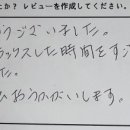 たか？ レビューを作成してください。
うございました。
ラックスした時間をすご
した。
おねがいします。